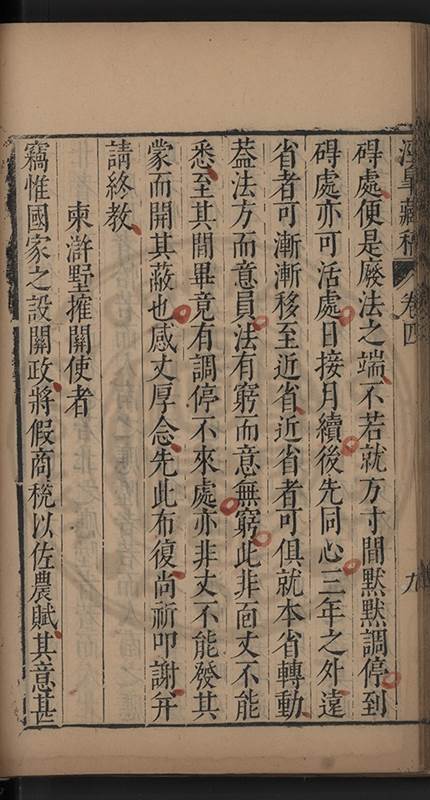 皐藏稿 卷四 九
碍處便是廢法之端不若就方寸間默默調停到
碍處亦可活處日接月續後先同心三年之外遠
省者可漸漸移至近省近省者可俱就本省轉動
葢法方而意員法有窮而意無窮此非靣丈不能
悉至其間畢竟有調停不來處亦非丈不能發其
蒙而開其蔽也感丈厚念先此布復尚祈叩謝并
請終教
柬滸墅搉關使者
竊惟國家之設關政將假商稅以佐農賦其意甚